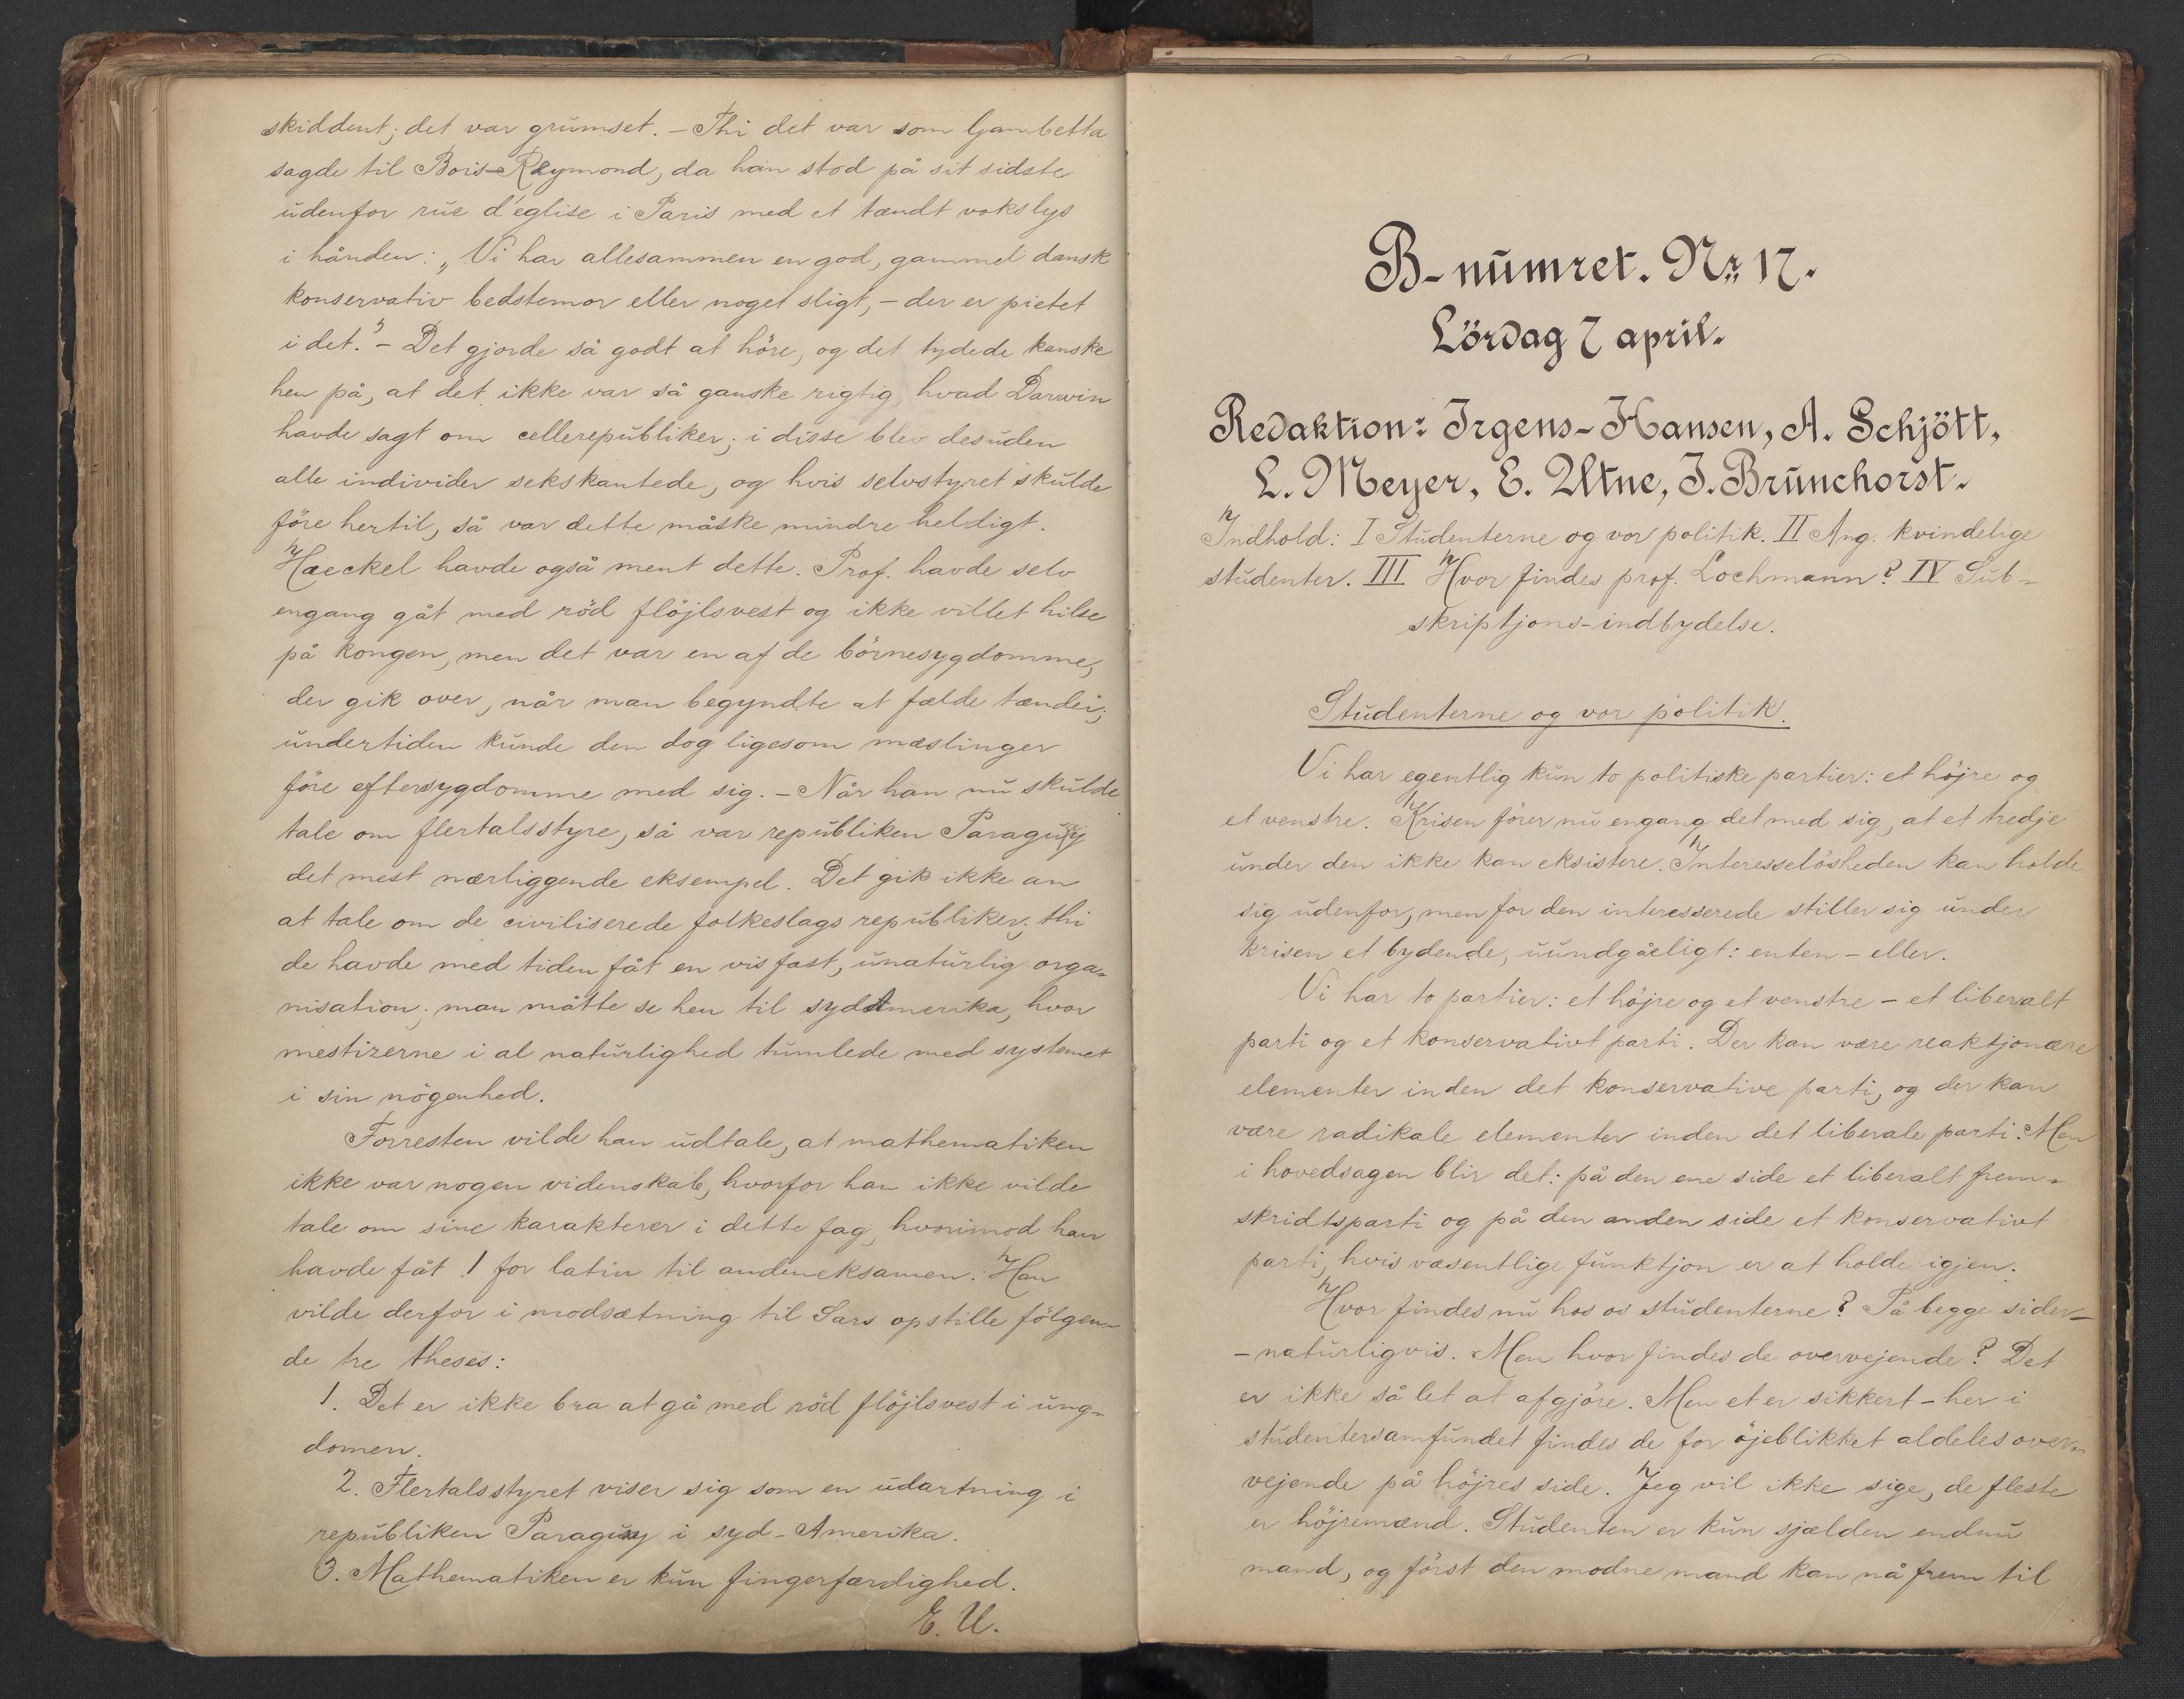 skiddent; det var grumset. – Thi det var som Gambetta
sagde til Bois-Reymond, da han stod på sit sidste
udenfor rue d'église i Paris med et tændt vokslys
i hånden: „Vi har allesammen en god, gammel dansk
konservativ bedstemor eller noget sligt, – der er pietet
i det." – Det gjorde så godt at höre, og det tydede kanske
hen på, at det ikke var så ganske rigtig, hvad Darwin
havde sagt om cellerepubliker; i disse blev desuden
alle individer sekskantede, og hvis selvstyret skulde
före hertil, så var dette måske mindre heldigt.
Haeckel havde også ment dette. Prof. havde selv
engang gåt med röd flöjlsvest og ikke villet hilse
på kongen, men det var en af de börnesygdomme,
der gik over, når man begyndte at fælde tænder;
undertiden kunde den dog ligesom mæslinger
före eftersygdomme med sig. – Når han nu skulde
tale om flertalsstyre, så var republiken Paraguay
det mest nærliggende eksempel. Det gik ikke an
at tale om de civiliserede folkeslags republiker; thi
de havde med tiden fåt en vis fast, unaturlig orga-
nisation; man måtte se hen til sydAmerika, hvor
mestizerne i al naturlighed tumlede med systemet
i sin nögenhed.
Forresten vilde han udtale, at mathematiken
ikke var nogen videnskab, hvorfor han ikke vilde
tale om sine karakterer i dette fag, hvorimod han
havde fåt 1 for latin til andeneksamen. Han
vilde derfor i modsætning til Sars opstille fölgen-
de tre theses:
1. Det er ikke bra at gå med röd flöjlsvest i ung-
domen.
2. Flertalsstyret viser sig som en udartning i
republiken Paraguay i syd-Amerika.
3. Mathematiken er kun fingerfærdighed.
E. U.
B-numret. Nr. 17.
Lördag 7 april.
Redaktion: Irgens-Hansen, A. Schjött,
L. Meyer, E. Utne, J. Brunchorst.
Indhold: I Studenterne og vor politik. II Ang. kvindelige
studenter. III Hvor findes prof. Lochmann? IV Sub-
skriptjons-indbydelse.
Studenterne og vor politik.
Vi har egentlig kun to politiske partier: et höjre og
et venstre. Krisen förer nu engang det med sig, at et tredje
under den ikke kan eksistere. Interesselösheden kan holde
sig udenfor, men for den interesserede stiller sig under
krisen et bydende, uundgåeligt: enten – eller.
Vi har to partier: et höjre og et venstre – et liberalt
parti og et konservativt parti. Der kan være reaktjonære
elementer inden det konservative parti, og der kan
være radikale elementer inden det liberale parti. Men
i hovedsagen blir det: på den ene side et liberalt frem-
skridtsparti og på den anden side et konservativt
parti, hvis væsentlige funktjon er at holde igjen.
Hvor findes nu hos os studenterne? På begge sider –
– naturligvis. Men hvor findes de overvejende? Det
er ikke så let at afgjöre. Men et er sikkert – her i
studentersamfundet findes de for öjeblikket aldeles over-
vejende på höjres side. Jeg vil ikke sige, de fleste
er höjremænd. Studenten er kun sjælden endnu
mand, og först den modne mand kan nå frem til